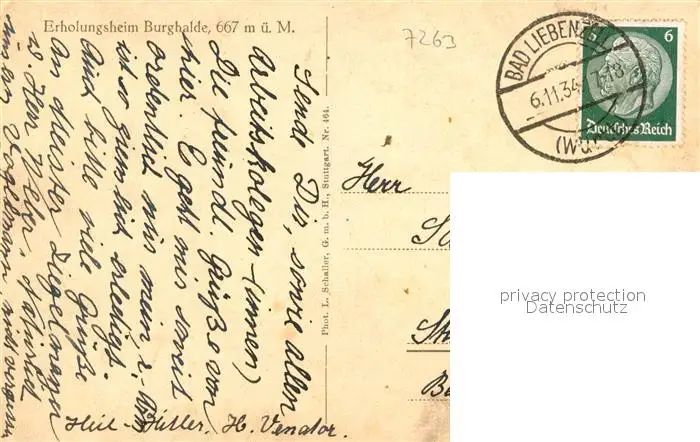 Erholungsheim Burghalde, 667 m ü. M.
7263
BAD LIEBENZELL
6.11.34. 7-18
(Wü
6 6
Deutsches Reich
Sende Dir, sowie allen
Arbeitskolegen-(innen)
Die freundl. Grüße von
hier. Es geht mir soweit
ordentlich nur mein
ist so ziemlich erledigt.
Und bitte viele Grüße
an Meister Ziegelmayer
u. Herr
Heil-Hitler. H. Venator.
Phot. L. Schaller, G. m. b. H., Stuttgart. Nr. 464.
Herr
privacy protection
Datenschutz